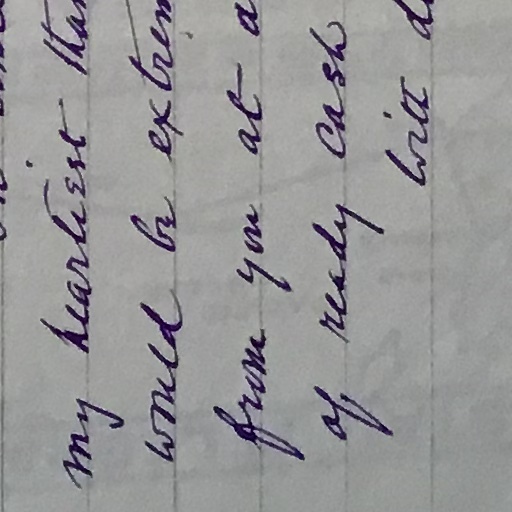 my heartiest than
would be extrem
from you at a
of ready cash
With d